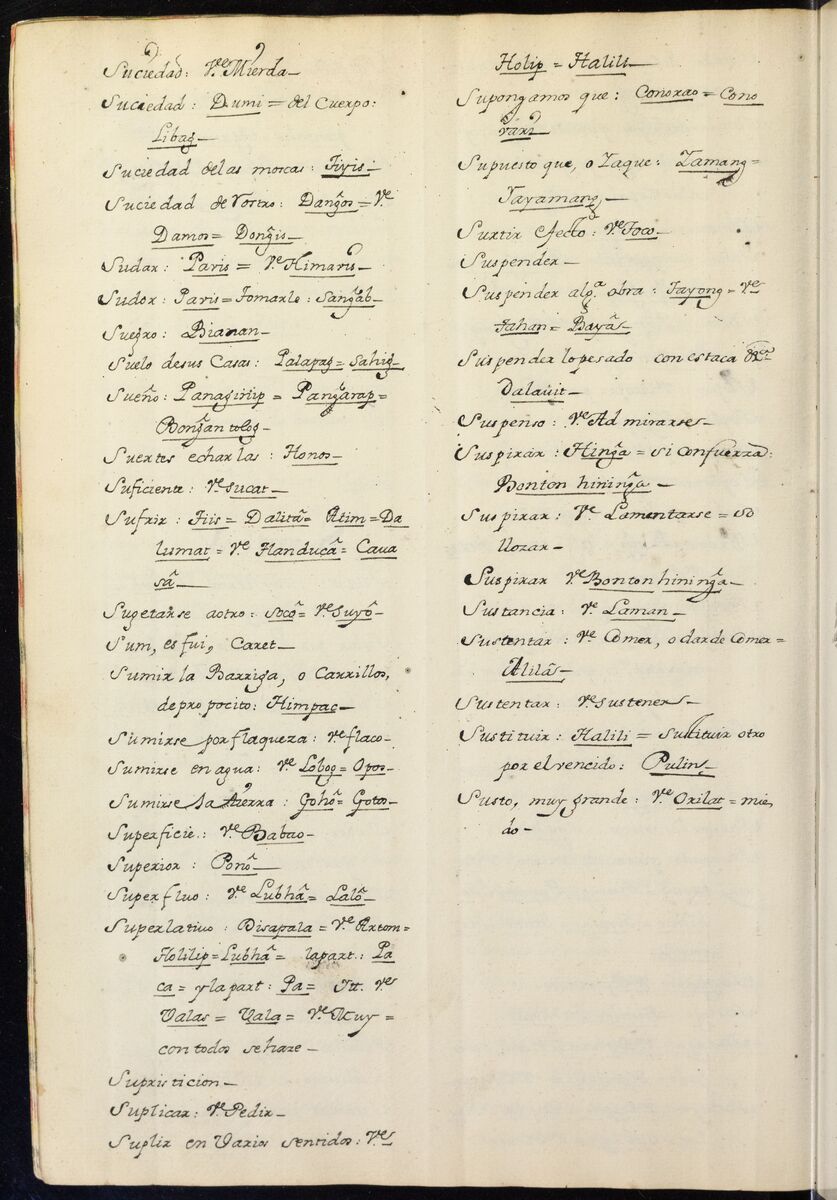 Suciedad: V.e Mierda—
Suciedad: Dumi = del Cuerpo:
Libag—
Suciedad de las moscas: Tiyis—
Suciedad de rostro: Dang̃os = V.e
Damos = Dong̃is—
Sudar: Paris = V.e Himaris—
Sudor: Paris = Tomarle: Sang̃ab—
Suegro: Bianan—
Suelo de sus Casas: Palapag = Sahig—
Sueño: Panaginip = Pang̃arap =
Bong̃an tolog—
Suertes echarlas: Honos—
Suficiente: V.e Sucat—
Sufrir: Tiis = Dalitâ = Atim = Da
lumat = V.e Handucâ = Caua
sâ—
Sugetarse a otro: Socô = V.e Suyô—
Sum, es fui, Caret—
Sumir la Barriga, o Carrillos,
de pro pocito: Himpac—
Sumirse por flaqueza: V.e flaco—
Sumirse en agua: V.e Lobog = Opos—
Sumirse la tierra: Gohô = Gotos—
Superficie: V.e Babao—
Superior: Ponô—
Superfluo: V.e Lubhâ = Lalô—
Superlativo: Disapala = V.e Artom =
Holilip = Lubhâ = la part.: Pa
ca = y la part: Pa = Itt. V.e
Ualas = Uala = V.e Muy =
con todos se haze—
Supristicion—
Suplicar: V.e Pedir—
Suplir en Varios sentidos: V.e
Holip = Halili—
Supongamos que: Conorao = Cono
rari
Supuesto que, o Zaque: Zamang =
Yayamang—
Surtir efecto: V.e Toco—
Suspender—
Suspender alg.a obra: Tayong = V.e
Tahan = Bayâs—
Suspender lo pesado con estaca
Dalauit—
Suspenso: V.e Ad mirarse—
Suspirar: Hing̃a = si con fuerza:
Bonton hining̃a—
Suspirar: V.e Lamentarse = So
llozar—
Suspirar V.e Bonton hining̃a—
Sustancia: V.e Laman—
Sustentar: V.e Comer, o dar de Comer =
Alilâs—
Sustentar: V.e Sustener—
Sustituir: Halili = Sustituir otro
por el vencido: Pulin—
Susto, muy grande: V.e Oxilat = mie
do—